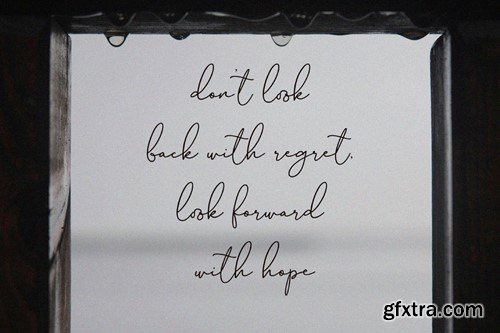 don't look
back with regret,
look forward
with hope
gfxtra.com